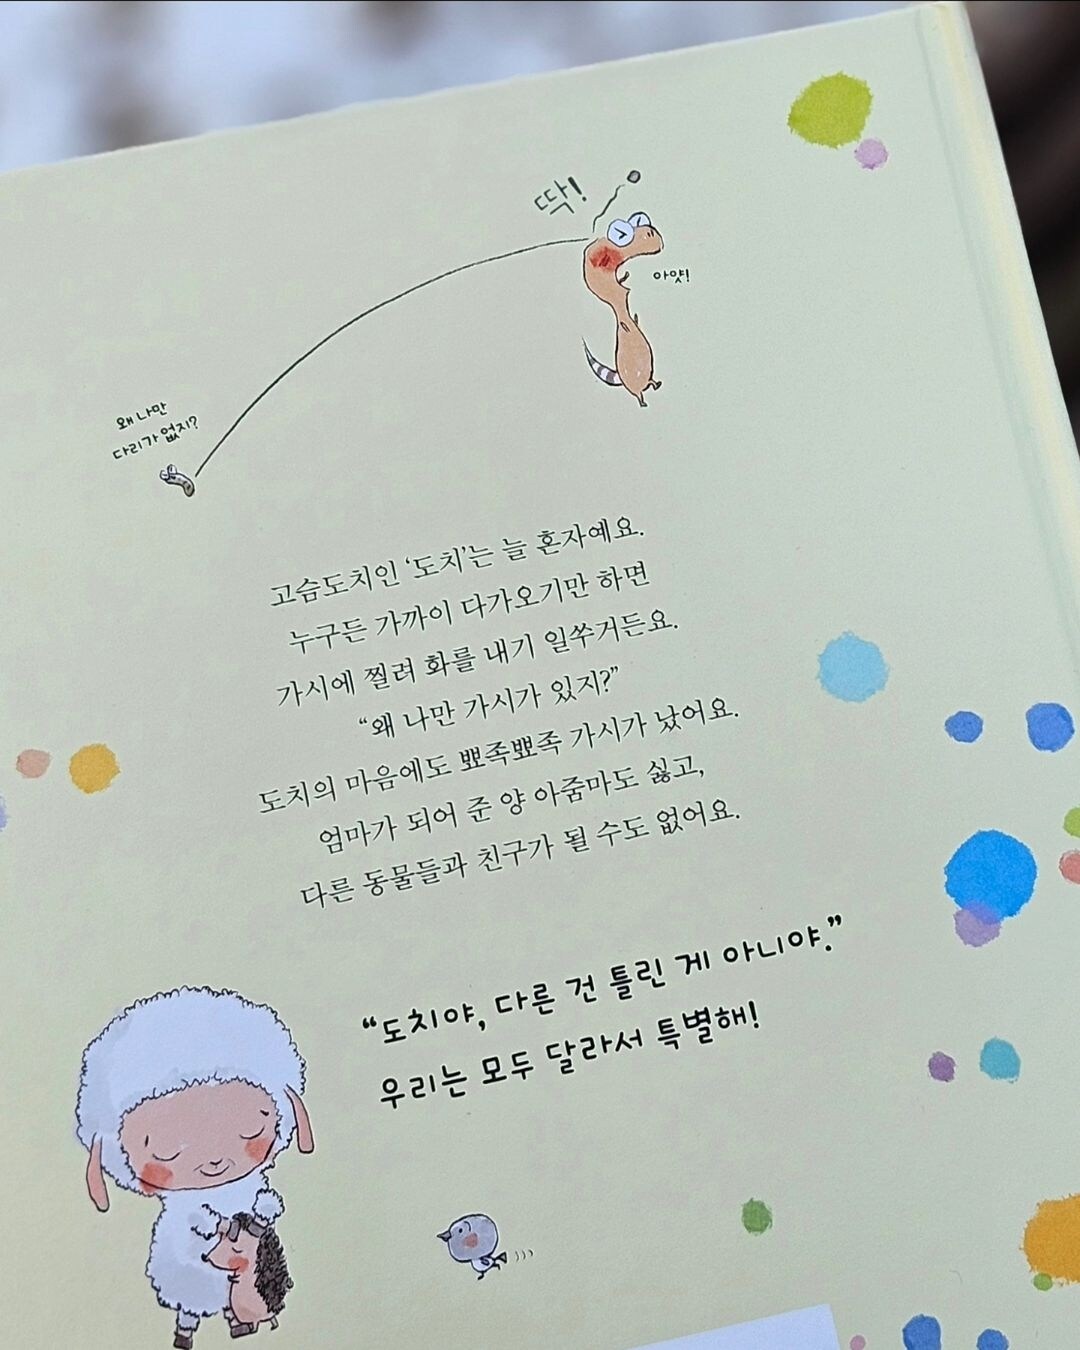 딱!
아얏!
왜 나만
다리가 없지?
고슴도치인 ‘도치’는 늘 혼자예요.
누구든 가까이 다가오기만 하면
가시에 찔려 화를 내기 일쑤거든요.
“왜 나만 가시가 있지?”
도치의 마음에도 뾰족뾰족 가시가 났어요.
엄마가 되어 준 양 아줌마도 싫고,
다른 동물들과 친구가 될 수도 없어요.
“도치야, 다른 건 틀린 게 아니야.”
우리는 모두 달라서 특별해!